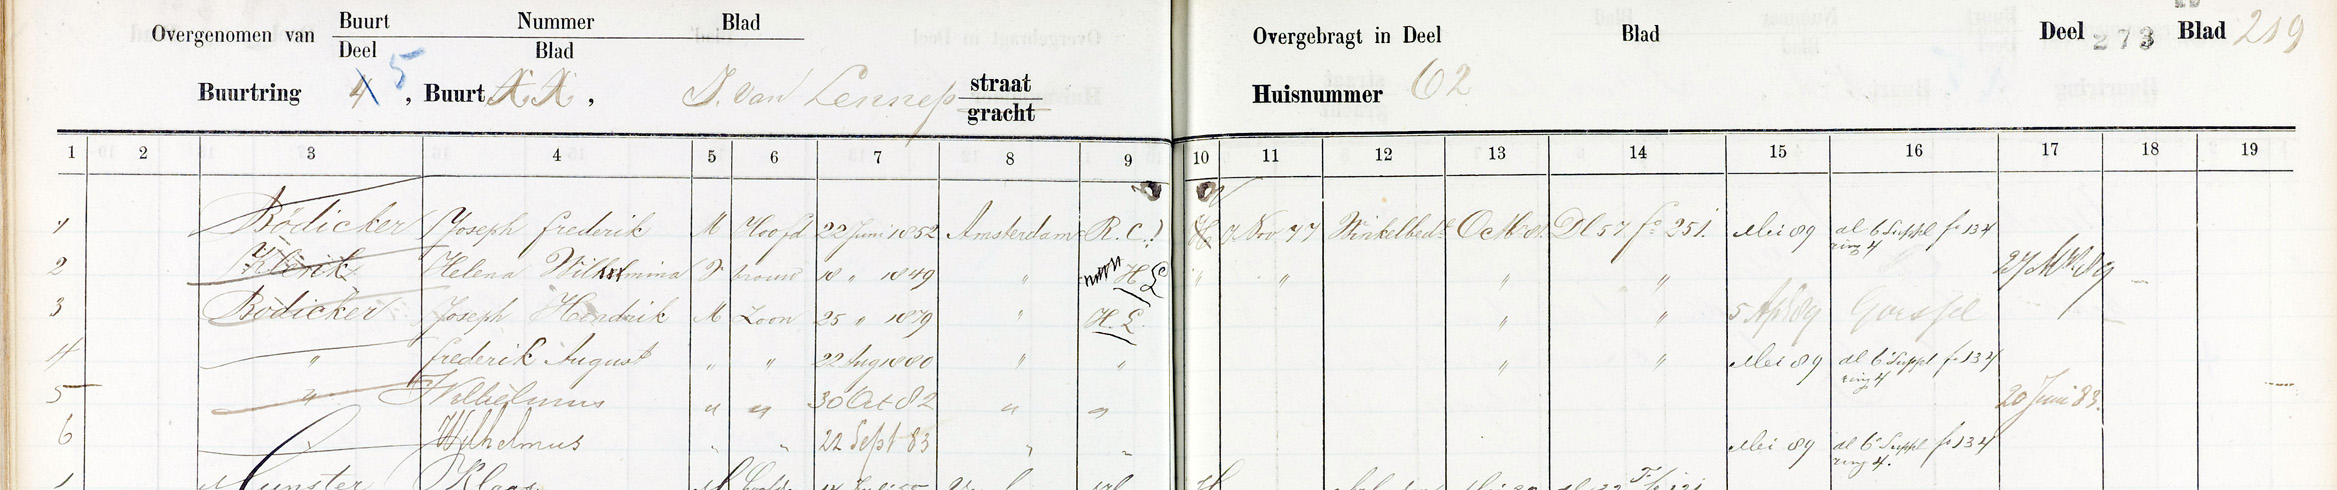 Overgenomen van Buurt Nummer Blad
Deel Blad
Overgebragt in Deel Blad Deel 273 Blad 219
Buurtring 4 5, Buurt XX, J. van Lennep straat
gracht
Huisnummer 62
1 2 3 4 5 6 7 8 9 10 11 12 13 14 15 16 17 18 19
1 Bödicker Joseph frederik M Hoofd 22 Juni 1852 Amsterdam R.C. H 9 Nov 77 Winkelbede Oct 81. Dl 57 fo 251. Mei 89 dl 6 Suppl fo 134
ring 4
2 Klerik Helena Wilhelmina V vrouw 18 " 1849 " H L " " " " 27 Mrt 89
3 Bödicker Joseph Hendrik M Zoon 25 " 1879 " H. L. " " 5 Apl 89 Gorssel
4 " frederik August " " 22 Aug 1880 " " " " Mei 89 dl 6 Suppl fo 134
ring 4
5 " Wilhelmus " " 30 Oct 82 " " 20 Juni 83.
6 Wilhelmus " " 22 Sept 83 " " Mei 89 dl 6 Suppl fo 134
ring 4.
1 Munster Klaas